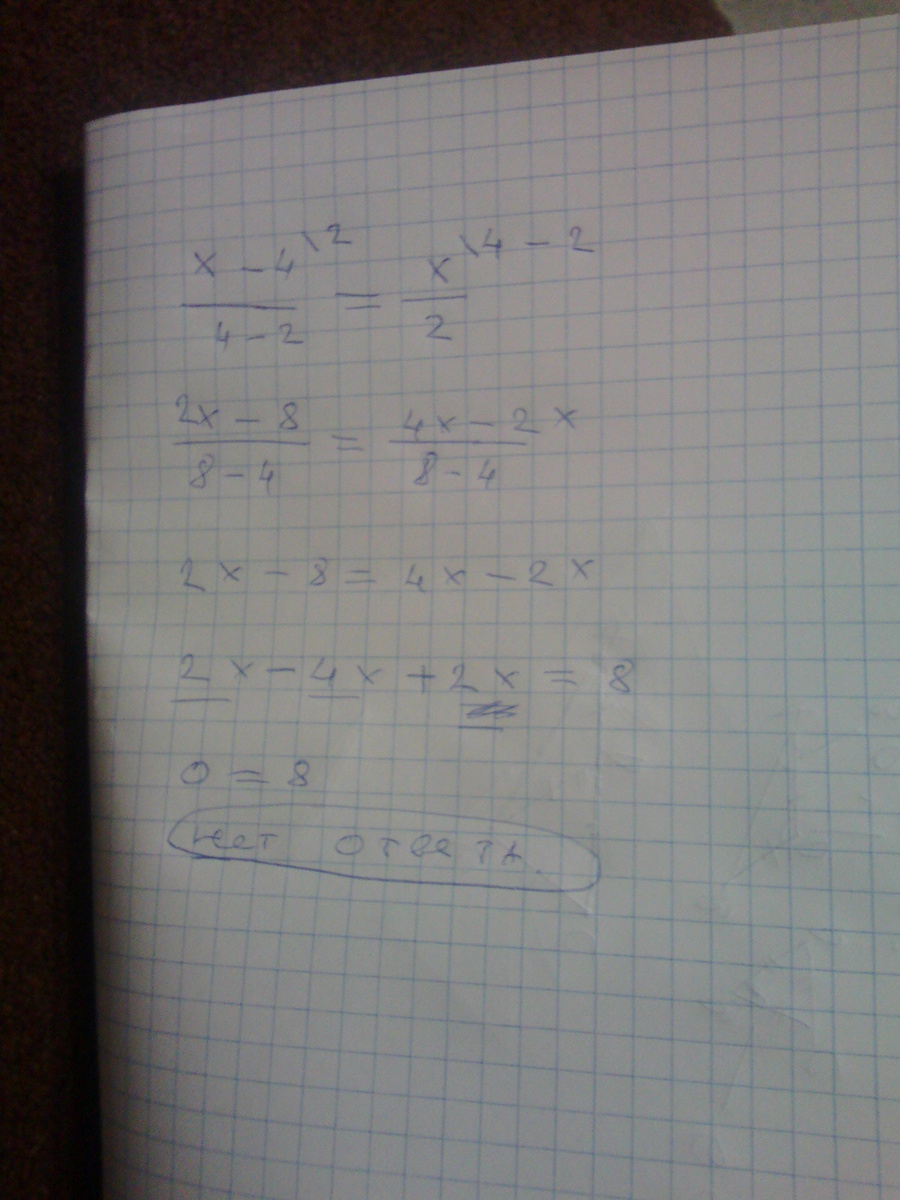 x - 4 \2 / 4 - 2 = x \4 - 2 / 2
2x - 8 / 8 - 4 = 4x - 2x / 8 - 4
2x - 8 = 4x - 2x
2x - 4x + 2x = 8
0 = 8
нет ответа